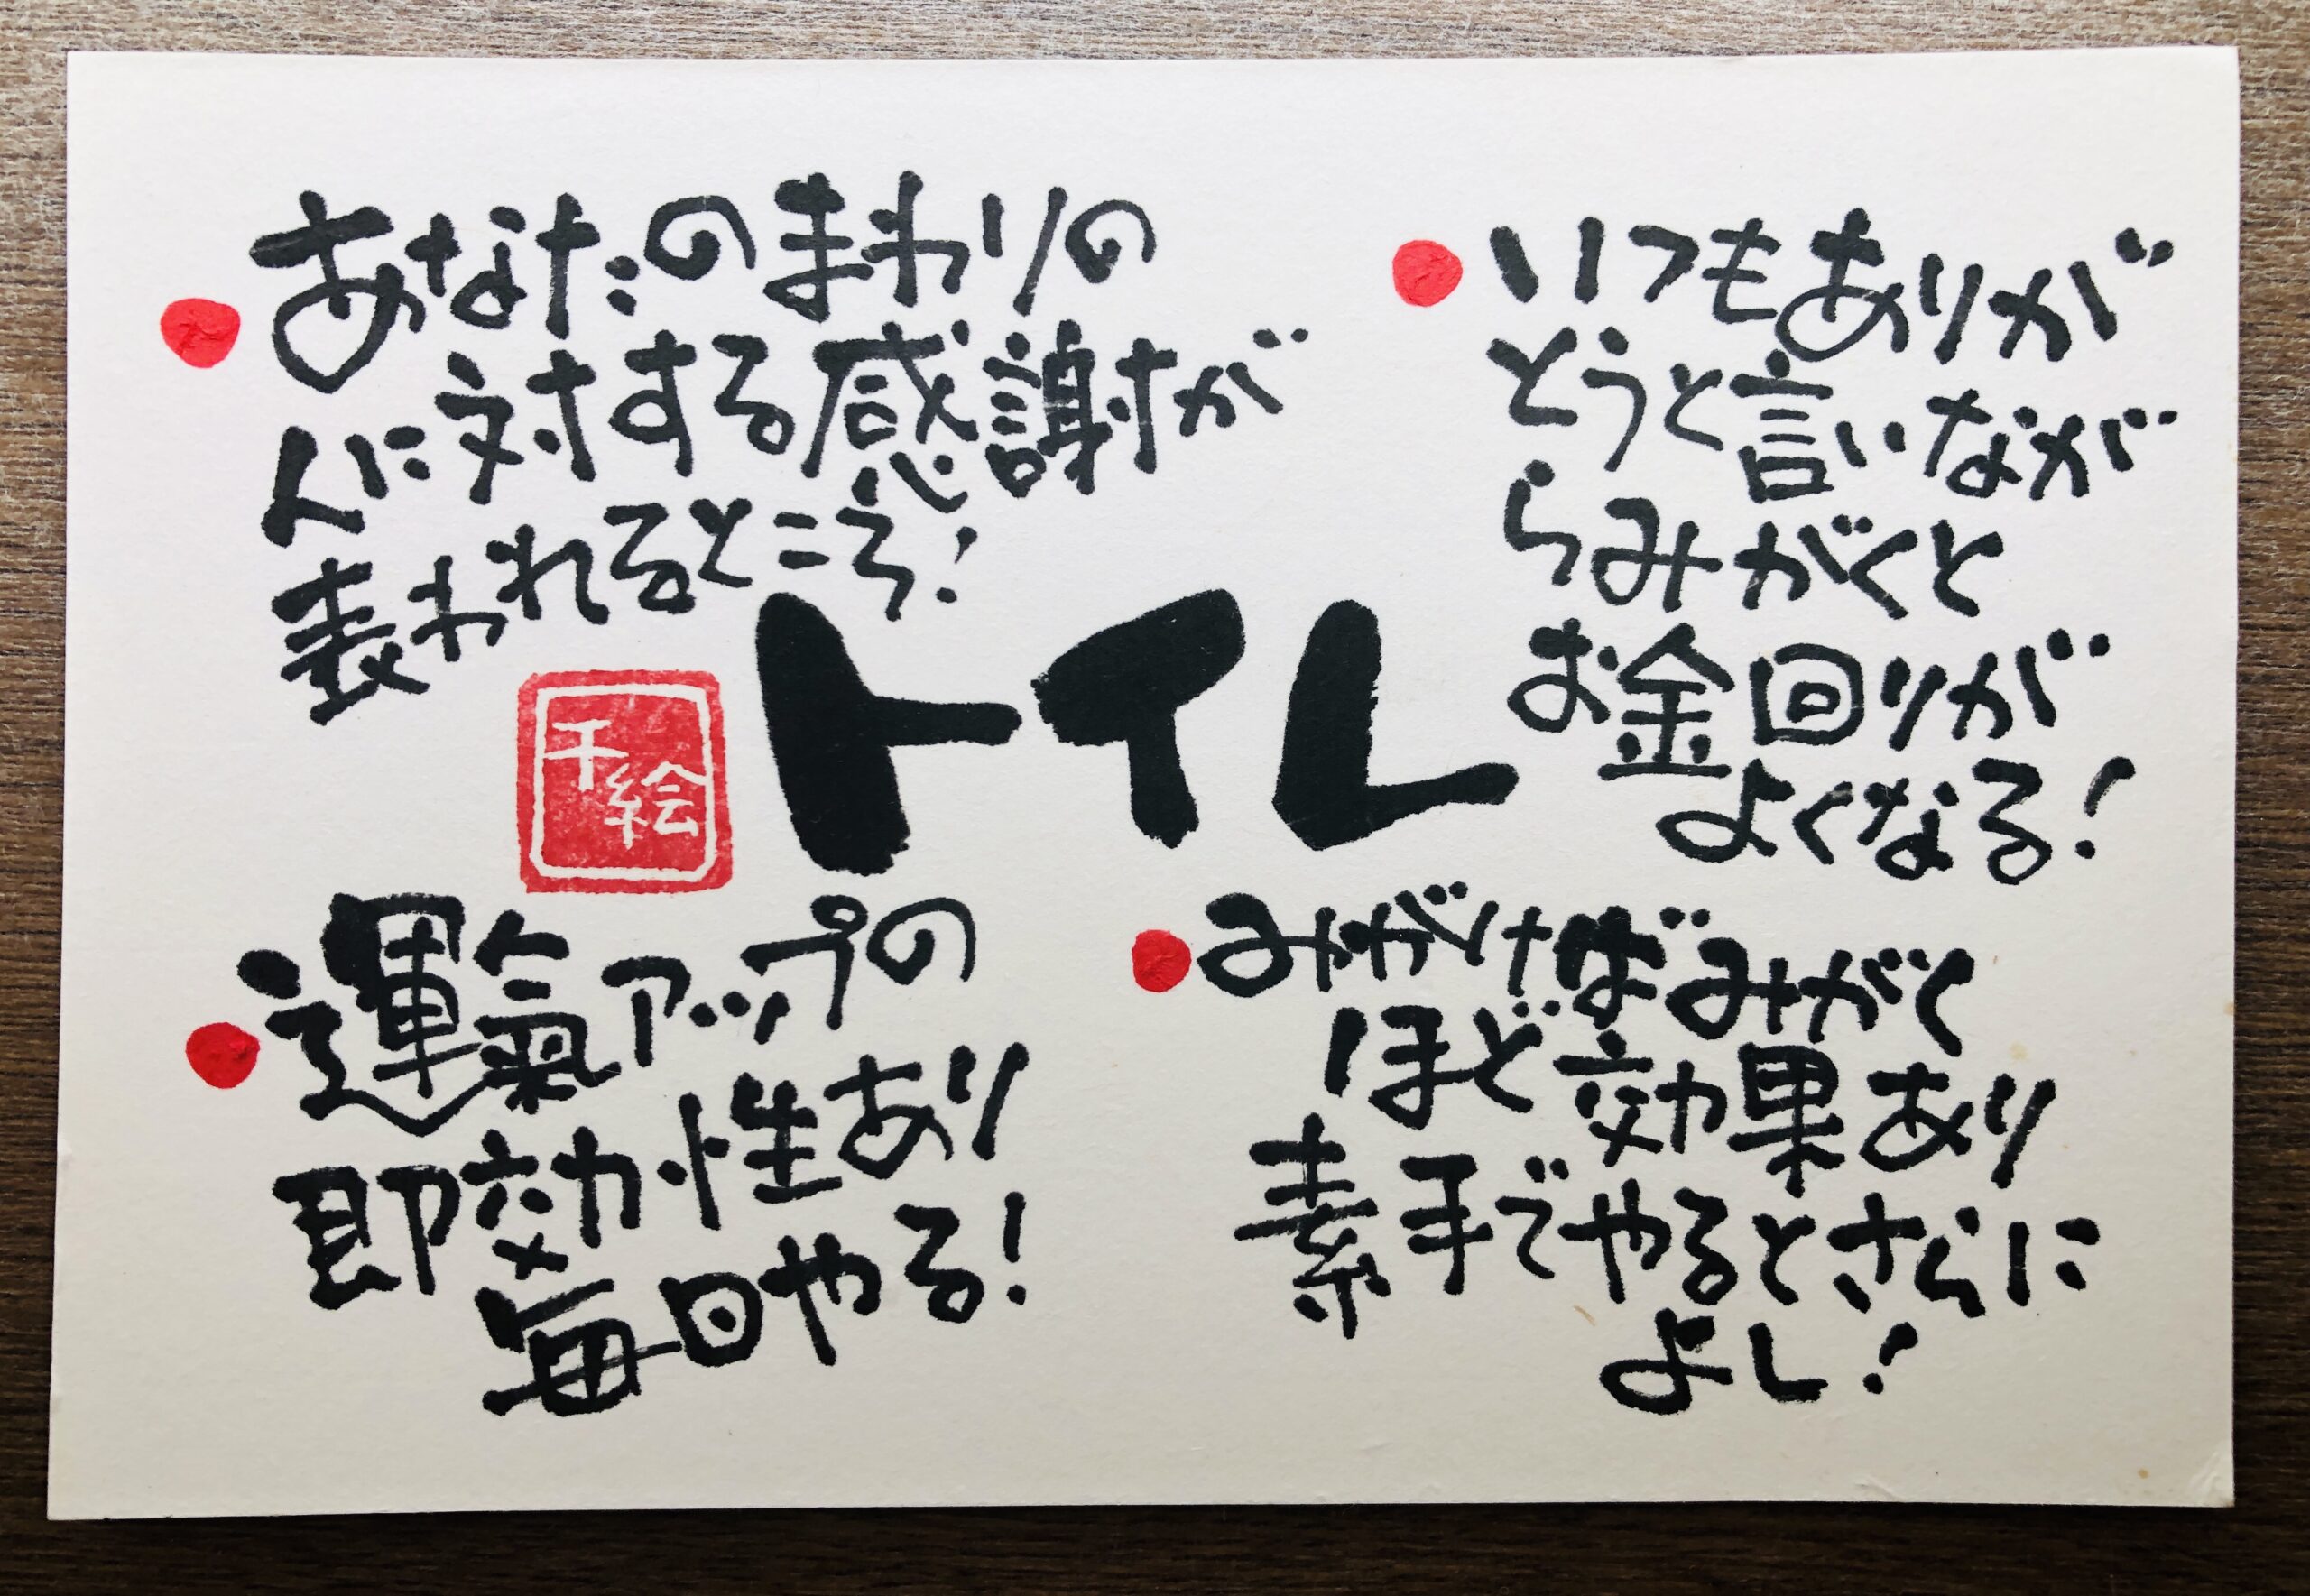 あなたのまわりの
人に対する感謝が
表われるところ!
いつもありが
どうと言いなが
らみがくと
お金回りが
よくなる!
トイレ
千絵
運氣アップの
即効性あり
毎回やる!
みがけばみがく
ほど効果あり
素手でやるとさらに
よし!